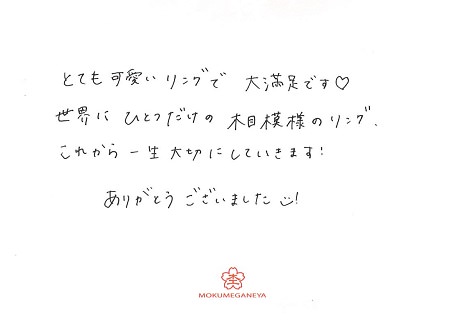 とても可愛いリングで 大満足です♡
世界に ひとつだけの 木目模様のリング、
これから 一生 大切にしていきます!
ありがとう ございました☺!
MOKUMEGANEYA